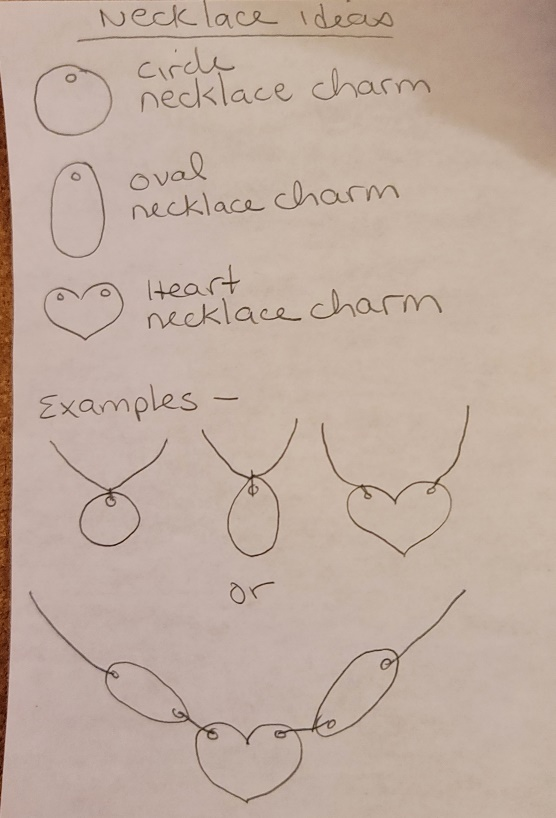 Necklace ideas
circle
necklace charm
oval
necklace charm
Heart
necklace charm
Examples -
or